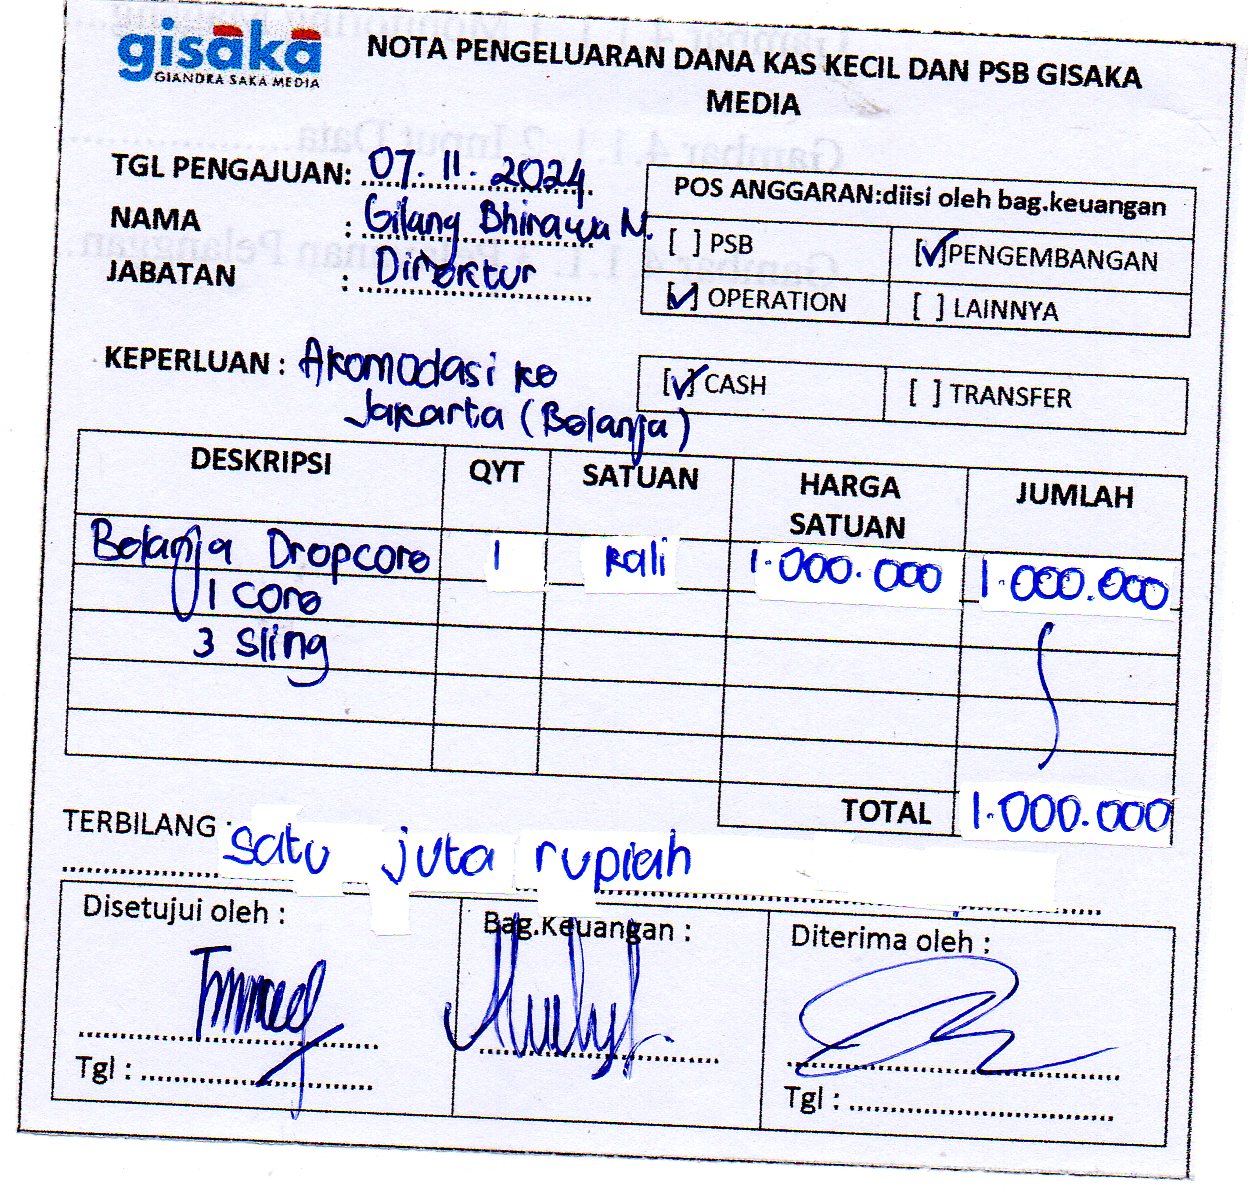 gisaka
GIANDRA SAKA MEDIA
NOTA PENGELUARAN DANA KAS KECIL DAN PSB GISAKA
MEDIA
TGL PENGAJUAN: 07.11.2024
NAMA : Gilang Bhirawa N.
JABATAN : Direktur
POS ANGGARAN:diisi oleh bag.keuangan
[ ] PSB [✓]PENGEMBANGAN
[✓] OPERATION [ ] LAINNYA
KEPERLUAN : Akomodasi ke
Jakarta (Belanja)
[✓] CASH [ ] TRANSFER
DESKRIPSI QYT SATUAN HARGA SATUAN JUMLAH
Belanja Dropcore 1 kali 1.000.000 1.000.000
1 core
3 sling
TOTAL 1.000.000
TERBILANG : satu juta rupiah
Disetujui oleh : Bag.Keuangan : Diterima oleh :
Tgl : Tgl :